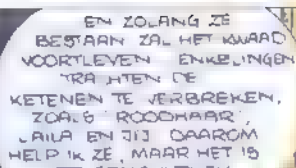 EN ZOLANG ZE
BESTAAN ZAL HET KWAAD
VOORTLEVEN ENKELINGEN
TRACHTEN DE
KETENEN TE VERBREKEN,
ZOALS ROODHAAR,
LAILA EN JIJ DAAROM
HELP IK ZE MAAR HET IS